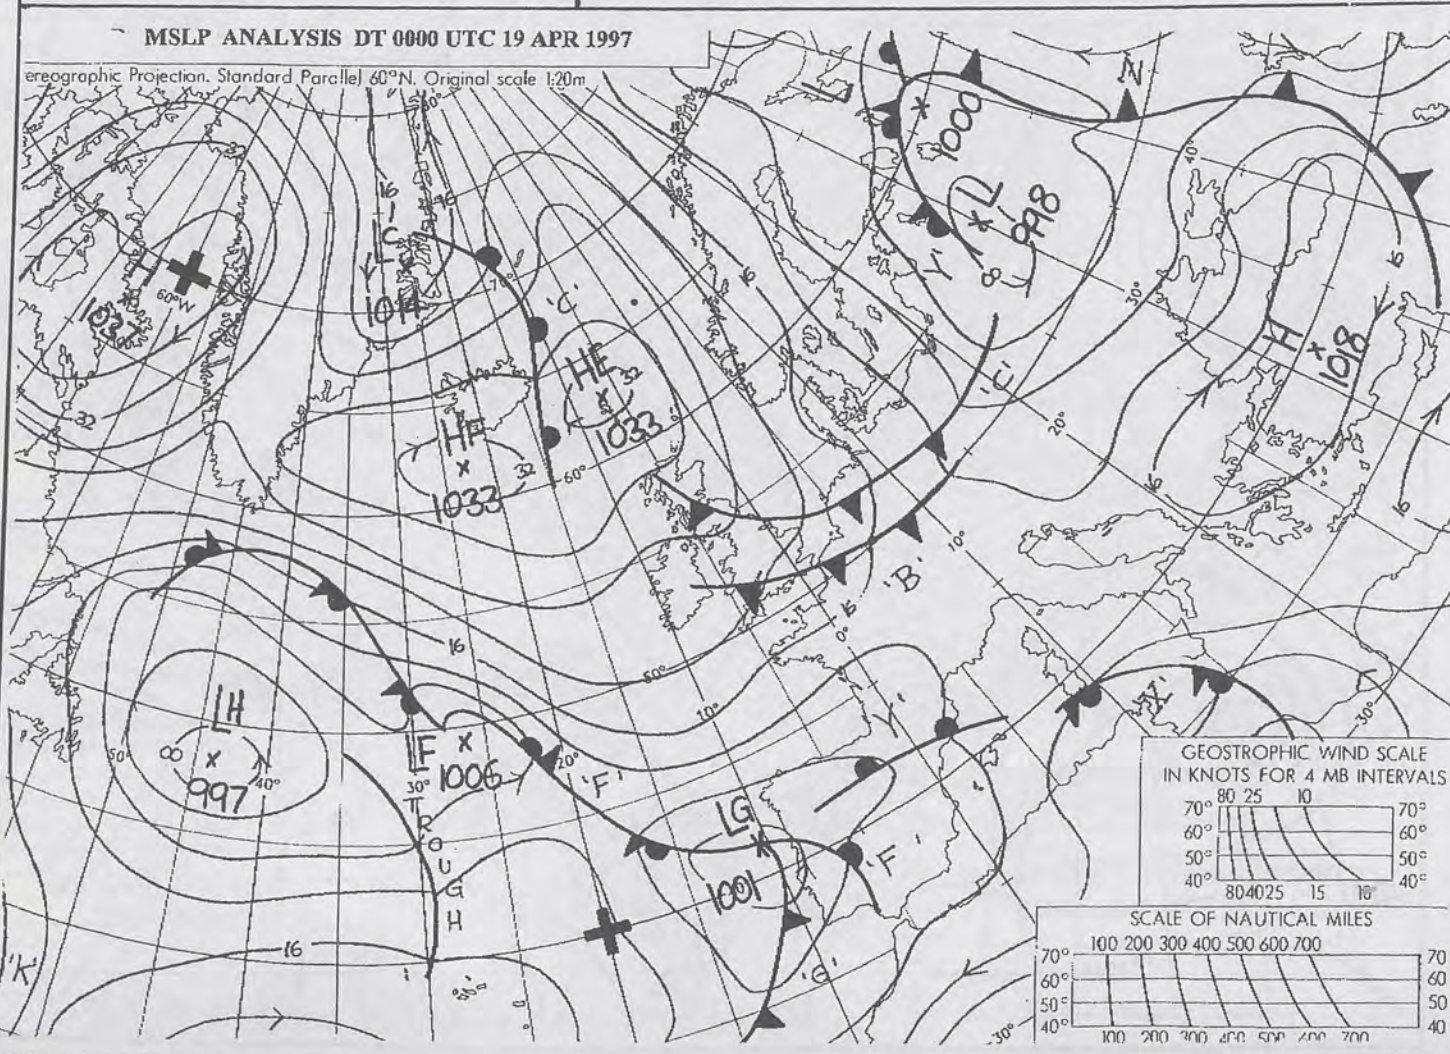 MSLP ANALYSIS DT 0000 UTC 19 APR 1997
ereographic Projection. Standard Parallel 60°N. Original scale 1:20m
80°
N
L
1000
40°
16
16
LC
1014
H
60°W
1037
70°
'C'
16
L
998
Y
8
30°
H
1018
16
HE
32
1033
HF
32
1033
60°
32
'C'
20°
16
16
10°
'B'
16
0°
16
50°
10°
LH
8
50°
997
40°
LF
1006
30°
20°
'F'
TROUGH
'Y'
'X'
30°
LG
1001
'F'
'G'
16
'K'
30°
GEOSTROPHIC WIND SCALE
IN KNOTS FOR 4 MB INTERVALS
80 25 10
70° 70°
60° 60°
50° 50°
40° 40°
80 40 25 15 10
SCALE OF NAUTICAL MILES
100 200 300 400 500 600 700
70° 70
60° 60
50° 50
40° 40
100 200 300 400 500 600 700